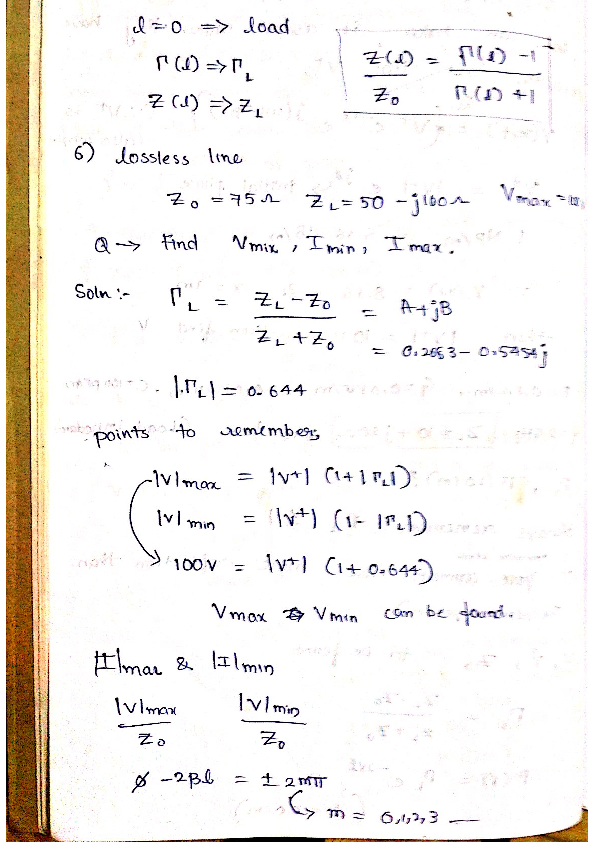 l = 0 => load
Γ(l) => Γ_L
Z(l) => Z_L
Z(l) / Z_0 = Γ(l) - 1 / Γ(l) + 1
6) lossless line
Z_0 = 75 Ω Z_L = 50 - j100 Ω Vmax =
Q → Find Vmix, Imin, Imax.
Soln :- Γ_L = Z_L - Z_0 / Z_L + Z_0 = A + jB
= 0.2653 - 0.5454j
|Γ_L| = 0.644
points to remember,
|V|max = |V+| (1 + |Γ_L|)
|V|min = |V+| (1 - |Γ_L|)
100V = |V+| (1 + 0.644)
Vmax Vmin can be found.
|I|max & |I|min
|V|max / Z_0 |V|min / Z_0
ø - 2βl = ± 2mπ
↳ m = 0,1,2,3 —